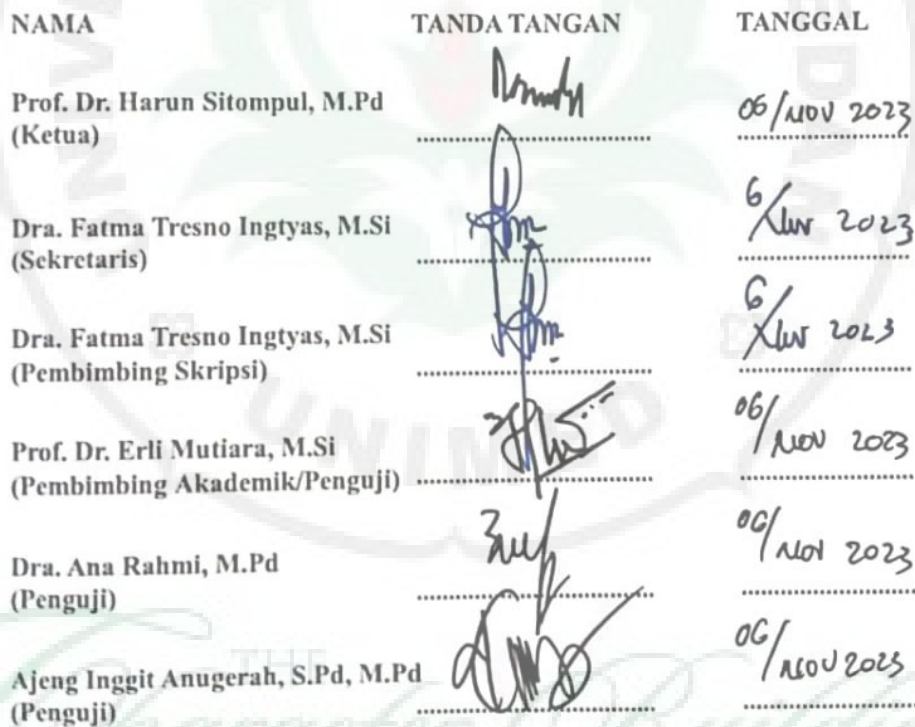 NAMA TANDA TANGAN TANGGAL
Prof. Dr. Harun Sitompul, M.Pd
(Ketua) 06/NOV 2023
Dra. Fatma Tresno Ingtyas, M.Si
(Sekretaris) 6/ 2023
Dra. Fatma Tresno Ingtyas, M.Si
(Pembimbing Skripsi) 6/ 2023
Prof. Dr. Erli Mutiara, M.Si
(Pembimbing Akademik/Penguji) 06/NOV 2023
Dra. Ana Rahmi, M.Pd
(Penguji) 06/NOV 2023
Ajeng Inggit Anugerah, S.Pd, M.Pd
(Penguji) 06/NOV 2023
UNIMED
THE